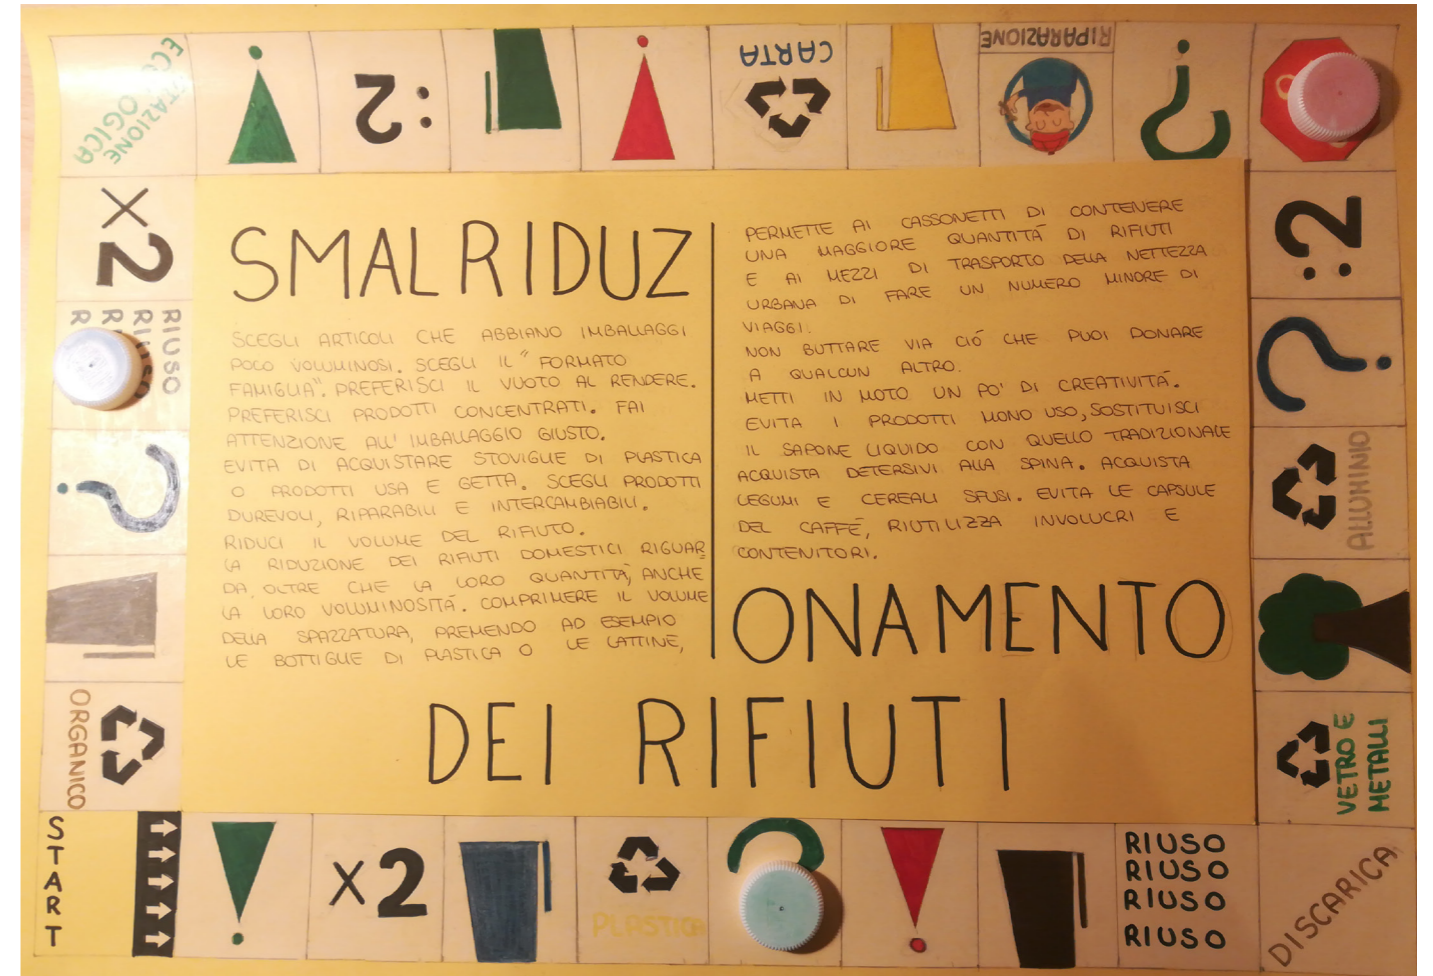 STAZIONE
ECOLOGICA
:2
CARTA
RIPARAZIONE
X2
RIUSO
RIUSO
:2
ALLUMINIO
VETRO E
METALLI
ORGANICO
SMALRIDUZ
SCEGLI ARTICOLI CHE ABBIANO IMBALLAGGI
POCO VOLUMINOSI. SCEGLI IL "FORMATO
FAMIGLIA". PREFERISCI IL VUOTO AL RENDERE.
PREFERISCI PRODOTTI CONCENTRATI. FAI
ATTENZIONE ALL'IMBALLAGGIO GIUSTO.
EVITA DI ACQUISTARE STOVIGLIE DI PLASTICA
O PRODOTTI USA E GETTA. SCEGLI PRODOTTI
DUREVOLI, RIPARABILI E INTERCAMBIABILI.
RIDUCI IL VOLUME DEL RIFIUTO.
LA RIDUZIONE DEI RIFIUTI DOMESTICI RIGUAR
DA, OLTRE CHE LA LORO QUANTITÀ, ANCHE
LA LORO VOLUMINOSITÀ. COMPRIMERE IL VOLUME
DELLA SPAZZATURA, PREMENDO AD ESEMPIO
LE BOTTIGLIE DI PLASTICA O LE LATTINE,
PERMETTE AI CASSONETTI DI CONTENERE
UNA MAGGIORE QUANTITÀ DI RIFIUTI
E AI MEZZI DI TRASPORTO DELLA NETTEZZA
URBANA DI FARE UN NUMERO MINORE DI
VIAGGI.
NON BUTTARE VIA CIÓ CHE PUOI DONARE
A QUALCUN ALTRO.
METTI IN MOTO UN PO' DI CREATIVITÀ.
EVITA I PRODOTTI MONO USO, SOSTITUISCI
IL SAPONE LIQUIDO CON QUELLO TRADIZIONALE
ACQUISTA DETERSIVI ALLA SPINA. ACQUISTA
LEGUMI E CEREALI SFUSI. EVITA LE CAPSULE
DEL CAFFÉ, RIUTILIZZA INVOLUCRI E
CONTENITORI.
ONAMENTO
DEI RIFIUTI
START
X2
PLASTICA
RIUSO
RIUSO
RIUSO
RIUSO
DISCARICA